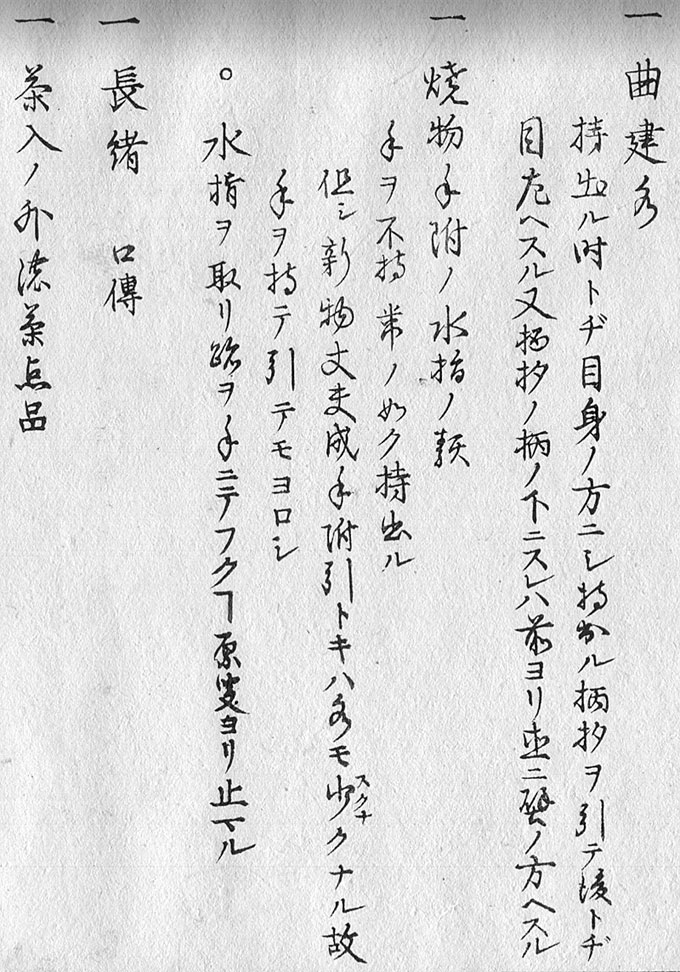 一 曲建水
持出ル時トヂ目身ノ方ニシ持出ル柄杓ヲ引テ後トヂ
目左ヘスル又柄杓ノ柄ノ下ニスレハ前ヨリ直ニ壁ノ方ヘスル
一 焼物手附ノ水指ノ類
手ヲ不持常ノ如ク持出ル
但シ新物丈夫成手附引トキハ水モ少クナル故
スクナ
手ヲ持テ引テモヨロシ
○ 水指ヲ取リ跡ヲ手ニテフクヿ原叟ヨリ止マル
一 長緒 口傳
一 茶入ノ外濃茶点品